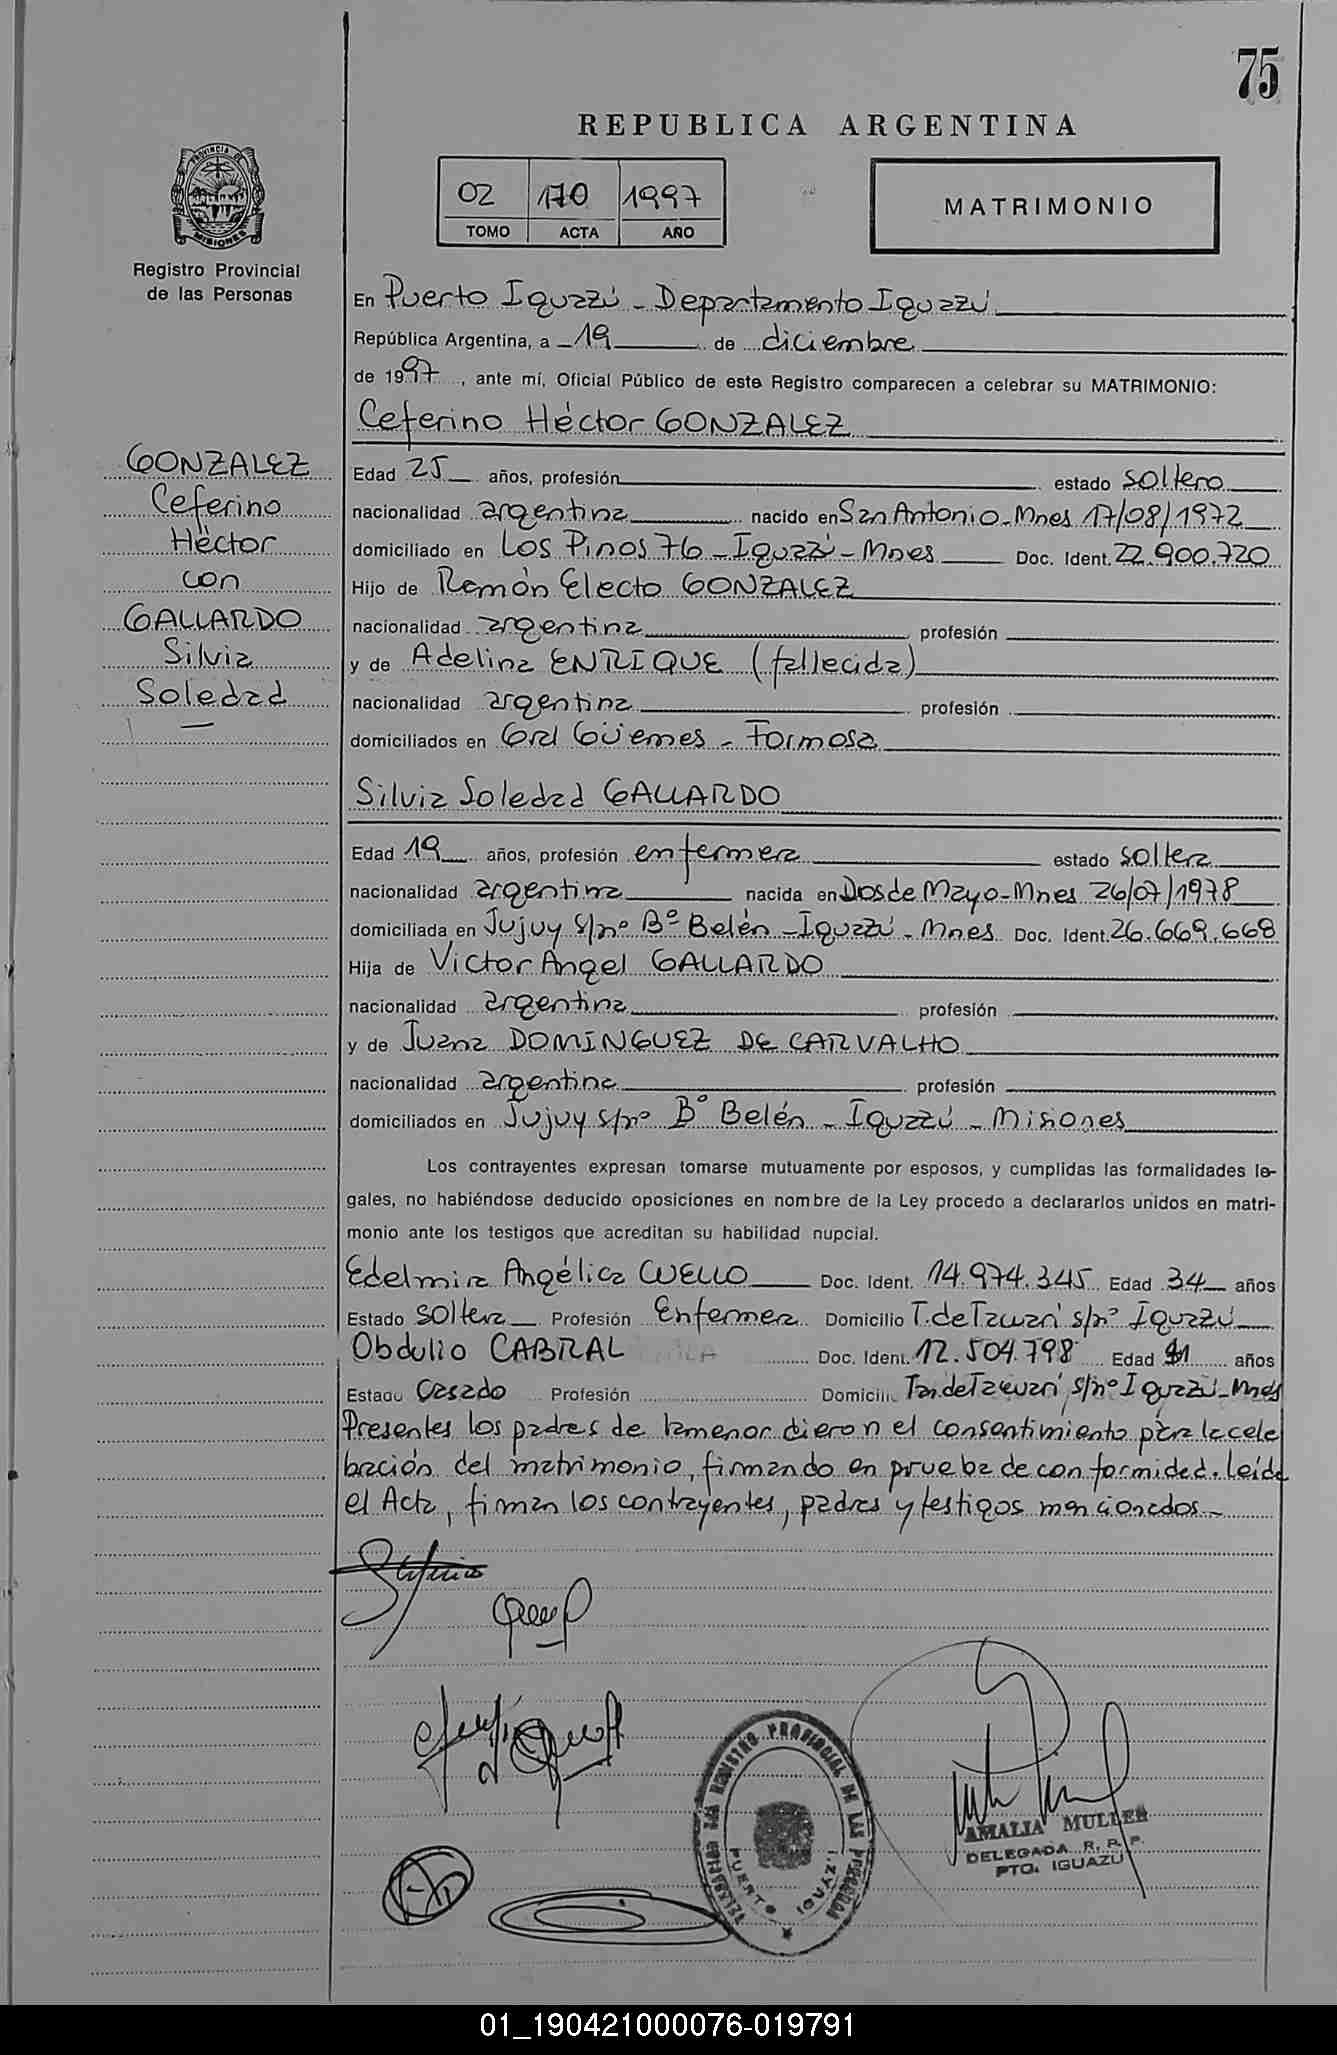 75
REPUBLICA ARGENTINA
PROVINCIA DE
MISIONES
Registro Provincial
de las Personas
02 170 1997
TOMO ACTA AÑO
MATRIMONIO
En Puerto Iguazú - Departamento Iguazú
República Argentina, a 19 de diciembre
de 1997, ante mí, Oficial Público de este Registro comparecen a celebrar su MATRIMONIO:
Ceferino Héctor GONZALEZ
GONZALEZ
Ceferino
Héctor
con
GALLARDO
Silvia
Soledad
Edad 25 años, profesión estado soltero
nacionalidad argentina nacido en San Antonio-Mnes 17/08/1972
domiciliado en Los Pinos 76 - Iguazú - Mnes Doc. Ident. 22.900.720
Hijo de Ramón Electo GONZALEZ
nacionalidad argentina profesión
y de Adelina ENRIQUE (fallecida)
nacionalidad argentina profesión
domiciliados en Gral Güemes - Formosa
Silvia Soledad GALLARDO
Edad 19 años, profesión enfermera estado soltera
nacionalidad argentina nacida en Dos de Mayo-Mnes 26/07/1978
domiciliada en Jujuy s/nº Bº Belén - Iguazú - Mnes Doc. Ident. 26.669.668
Hija de Victor Angel GALLARDO
nacionalidad argentina profesión
y de Juana DOMINGUEZ DE CARVALHO
nacionalidad argentina profesión
domiciliados en Jujuy s/nº Bº Belén - Iguazú - Misiones
Los contrayentes expresan tomarse mutuamente por esposos, y cumplidas las formalidades le-
gales, no habiéndose deducido oposiciones en nombre de la Ley procedo a declararlos unidos en matri-
monio ante los testigos que acreditan su habilidad nupcial.
Edelmira Angélica CUELLO Doc. Ident. 14.974.345 Edad 34 años
Estado soltera Profesión Enfermera Domicilio T. de Tacuarí s/nº Iguazú
Obdulio CABRAL Doc. Ident. 12.504.798 Edad años
Estado Casado Profesión Domicilio Tar de Tacuarí s/nº Iguazú - Mnes
Presentes los padres de la menor dieron el consentimiento para la cele
bración del matrimonio, firmando en prueba de conformidad. Leída
el Acta, firman los contrayentes, padres y testigos mencionados -
REGISTRO PROVINCIAL DE LAS PERSONAS
PUERTO IGUAZÚ
AMALIA MULLER
DELEGADA R. P. P.
PTO. IGUAZU
01_190421000076-019791